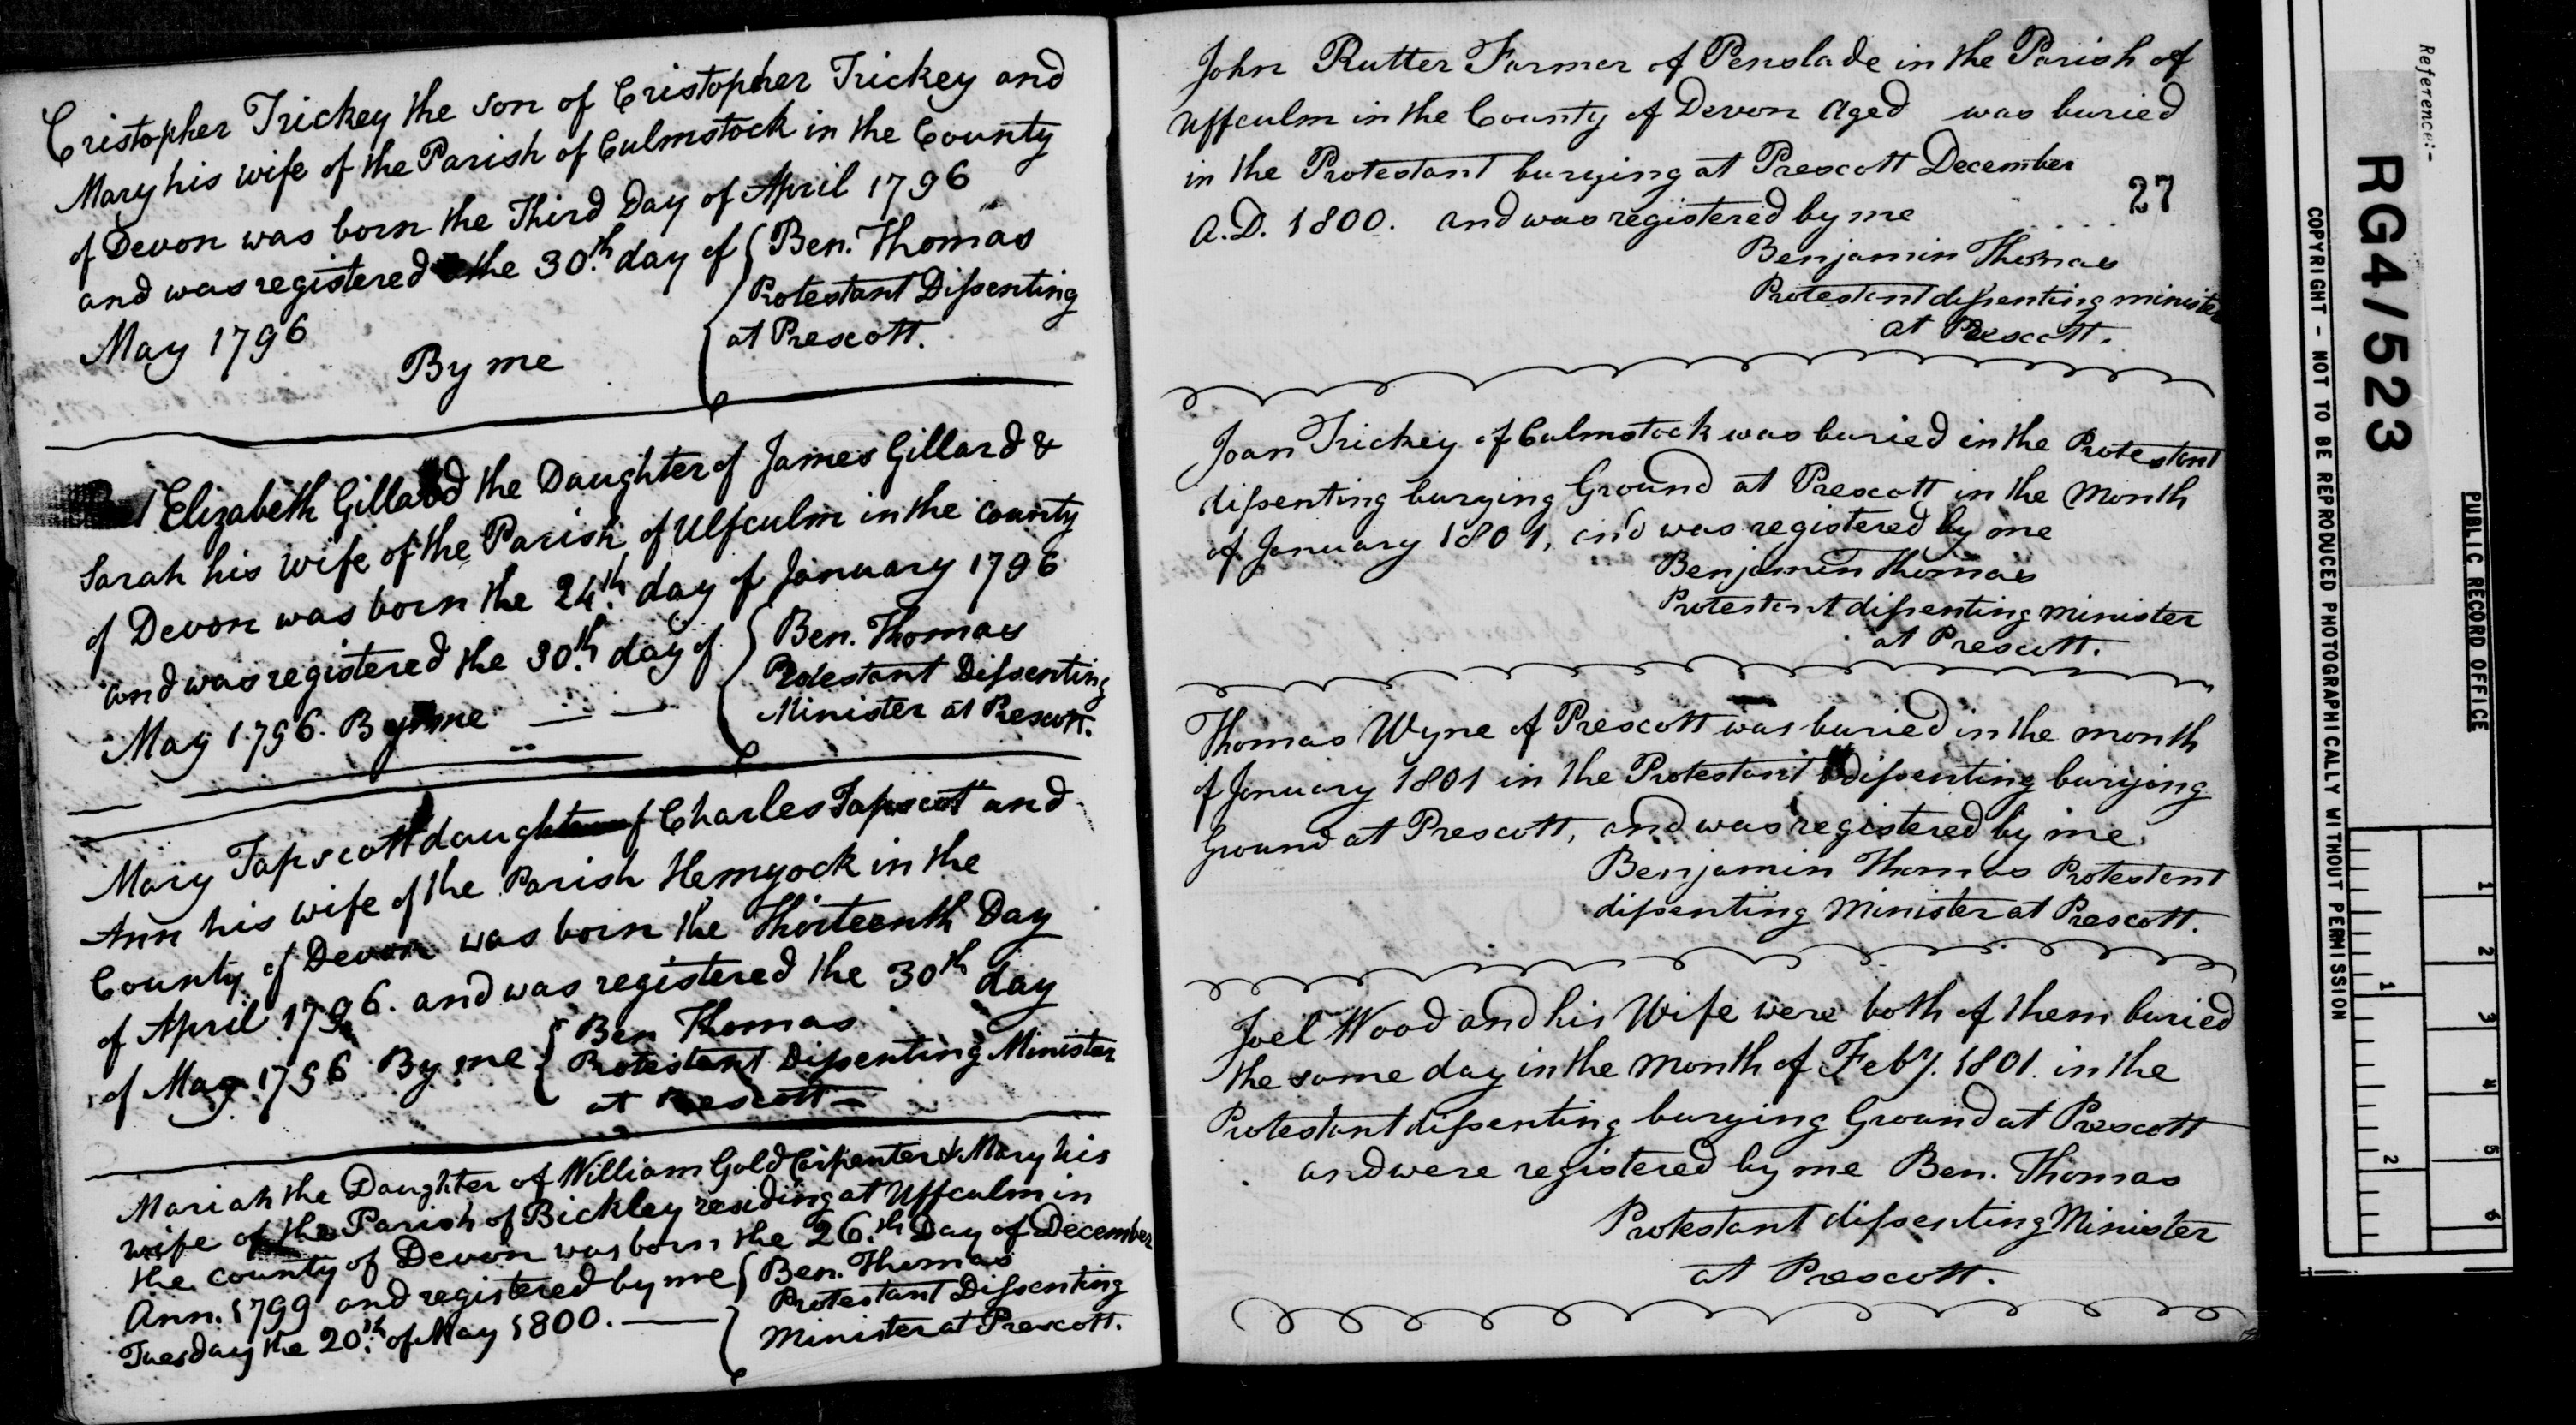 Cristopher Trickey the son of Cristopher Trickey and
Mary his wife of the Parish of Culmstock in the County
of Devon was born the Third Day of April 1796
and was registered the 30.th day of
May 1796
By me
Ben. Thomas
Protestant Dissenting
at Prescott.
Elizabeth Gillard the Daughter of James Gillard &
Sarah his wife of the Parish of Ulfculm in the county
of Devon was born the 24.th day of January 1796
and was registered the 30.th day of
May 1796. By me
Ben. Thomas
Protestant Dissenting
Minister at Prescott.
Mary Tapscott daughter of Charles Tapscott and
Ann his wife of the Parish Hemyock in the
County of Devon was born the Thirteenth Day
of April 1796. and was registered the 30th day
of May 1796 By me
Ben Thomas
Protestant Dissenting Minister
at Prescott
Mariah the Daughter of William Gold Carpenter & Mary his
wife of the Parish of Bickley residing at Uffculm in
the county of Devon was born the 26.th Day of December
Ann. 1799 and registered by me
Tuesday the 20.th of May 1800.
Ben. Thomas
Protestant Dissenting
Minister at Prescott.
John Rutter Farmer of Penslade in the Parish of
Uffculm in the County of Devon Aged was buried
in the Protestant burying at Prescott December
A.D. 1800. and was registered by me
27
Benjamin Thomas
Protestant dissenting minister
at Prescott.
Joan Trickey of Culmstock was buried in the Protestant
dissenting burying Ground at Prescott in the Month
of January 1801, and was registered by me
Benjamin Thomas
Protestant dissenting minister
at Prescott.
Thomas Wyne of Prescott was buried in the month
of January 1801 in the Protestant dissenting burying
Ground at Prescott, and was registered by me
Benjamin Thomas Protestant
dissenting Minister at Prescott.
Joel Wood and his Wife were both of them buried
the same day in the Month of Feby. 1801. in the
Protestant dissenting burying Ground at Prescott
and were registered by me Ben. Thomas
Protestant dissenting Minister
at Prescott.
Reference:-
RG4/523
PUBLIC RECORD OFFICE
COPYRIGHT - NOT TO BE REPRODUCED PHOTOGRAPHICALLY WITHOUT PERMISSION
1
2
1
2
3
4
5
6